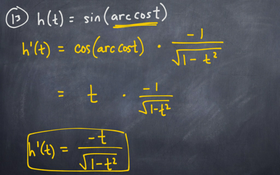 13 h(t) = sin(arccost)
h'(t) = cos(arccost) · -1/√(1-t²)
= t · -1/√(1-t²)
h'(t) = -t/√(1-t²)